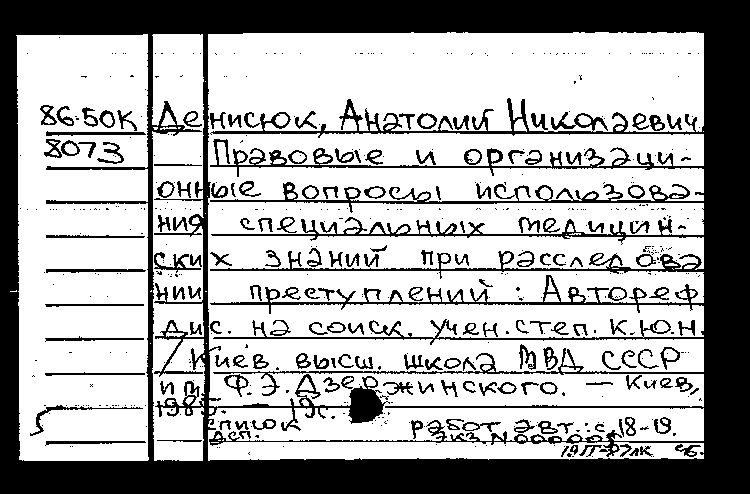 86-50К Денисюк, Анатолий Николаевич.
8073 Правовые и организаци-
онные вопросы использова-
ния специальных медицин-
ских знаний при расследова
нии преступлений : Автореф
дис. на соиск. учен. степ. к.ю.н.
/ Киев. высш. школа МВД СССР
им. Ф.Э. Дзержинского. — Киев,
1985. — 19с.
Список работ авт.: с.18-19.
ДСП. Экз. N 000005